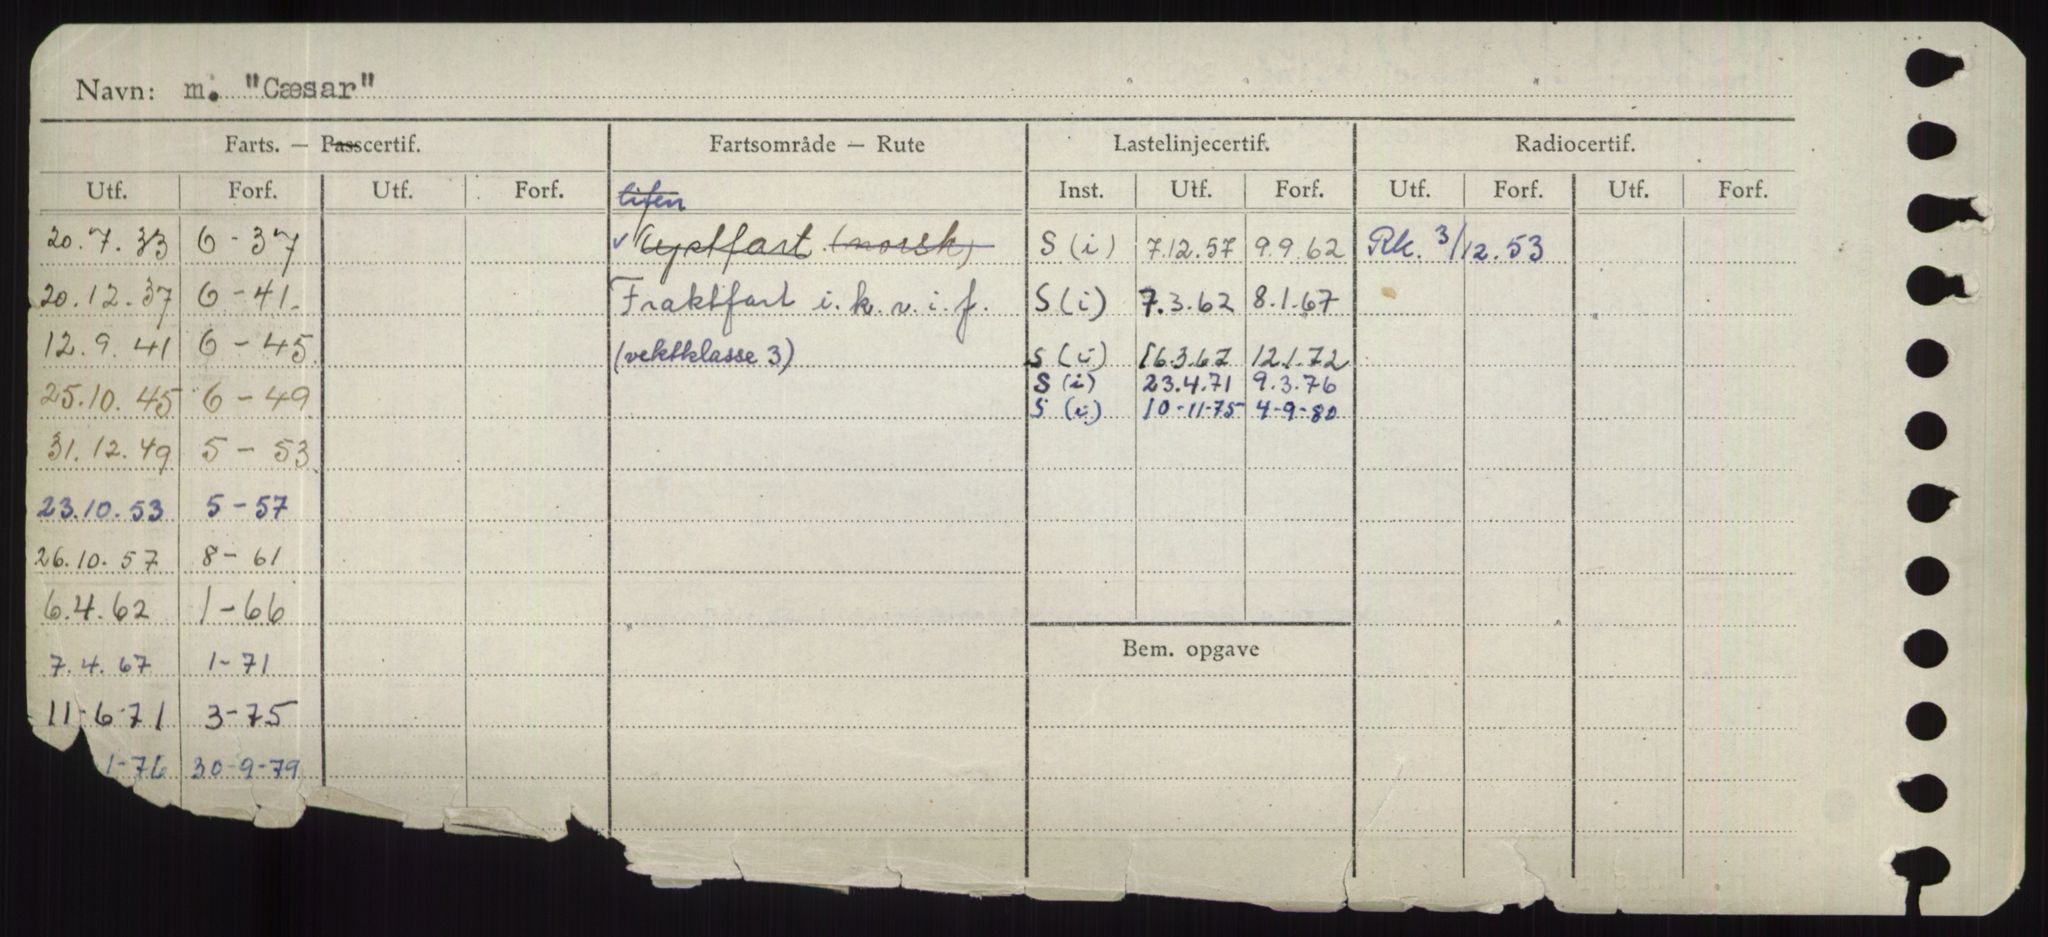 Navn: m. "Cæsar"
Farts. — Passcertif. Fartsområde — Rute Lastelinjecertif. Radiocertif.
Utf. Forf. Utf. Forf. liten Inst. Utf. Forf. Utf. Forf. Utf. Forf.
20.7.33 6-37 Kystfart (norsk) S (i) 7.12.57 9.9.62 Rk. 3/12.53
20.12.37 6-41. Fraktfart i.k.v.i.f. S (i) 7.3.62 8.1.67
12.9.41 6-45 (vektklasse 3) S (i) 16.3.67 12.1.72
S (i) 23.4.71 9.3.76
25.10.45 6-49 S (i) 10-11-75 4-9-80
31.12.49 5-53
23.10.53 5-57
26.10.57 8-61
6.4.62 1-66
Bem. opgave
7.4.67 1-71
11-6-71 3-75
1-76 30-9-79